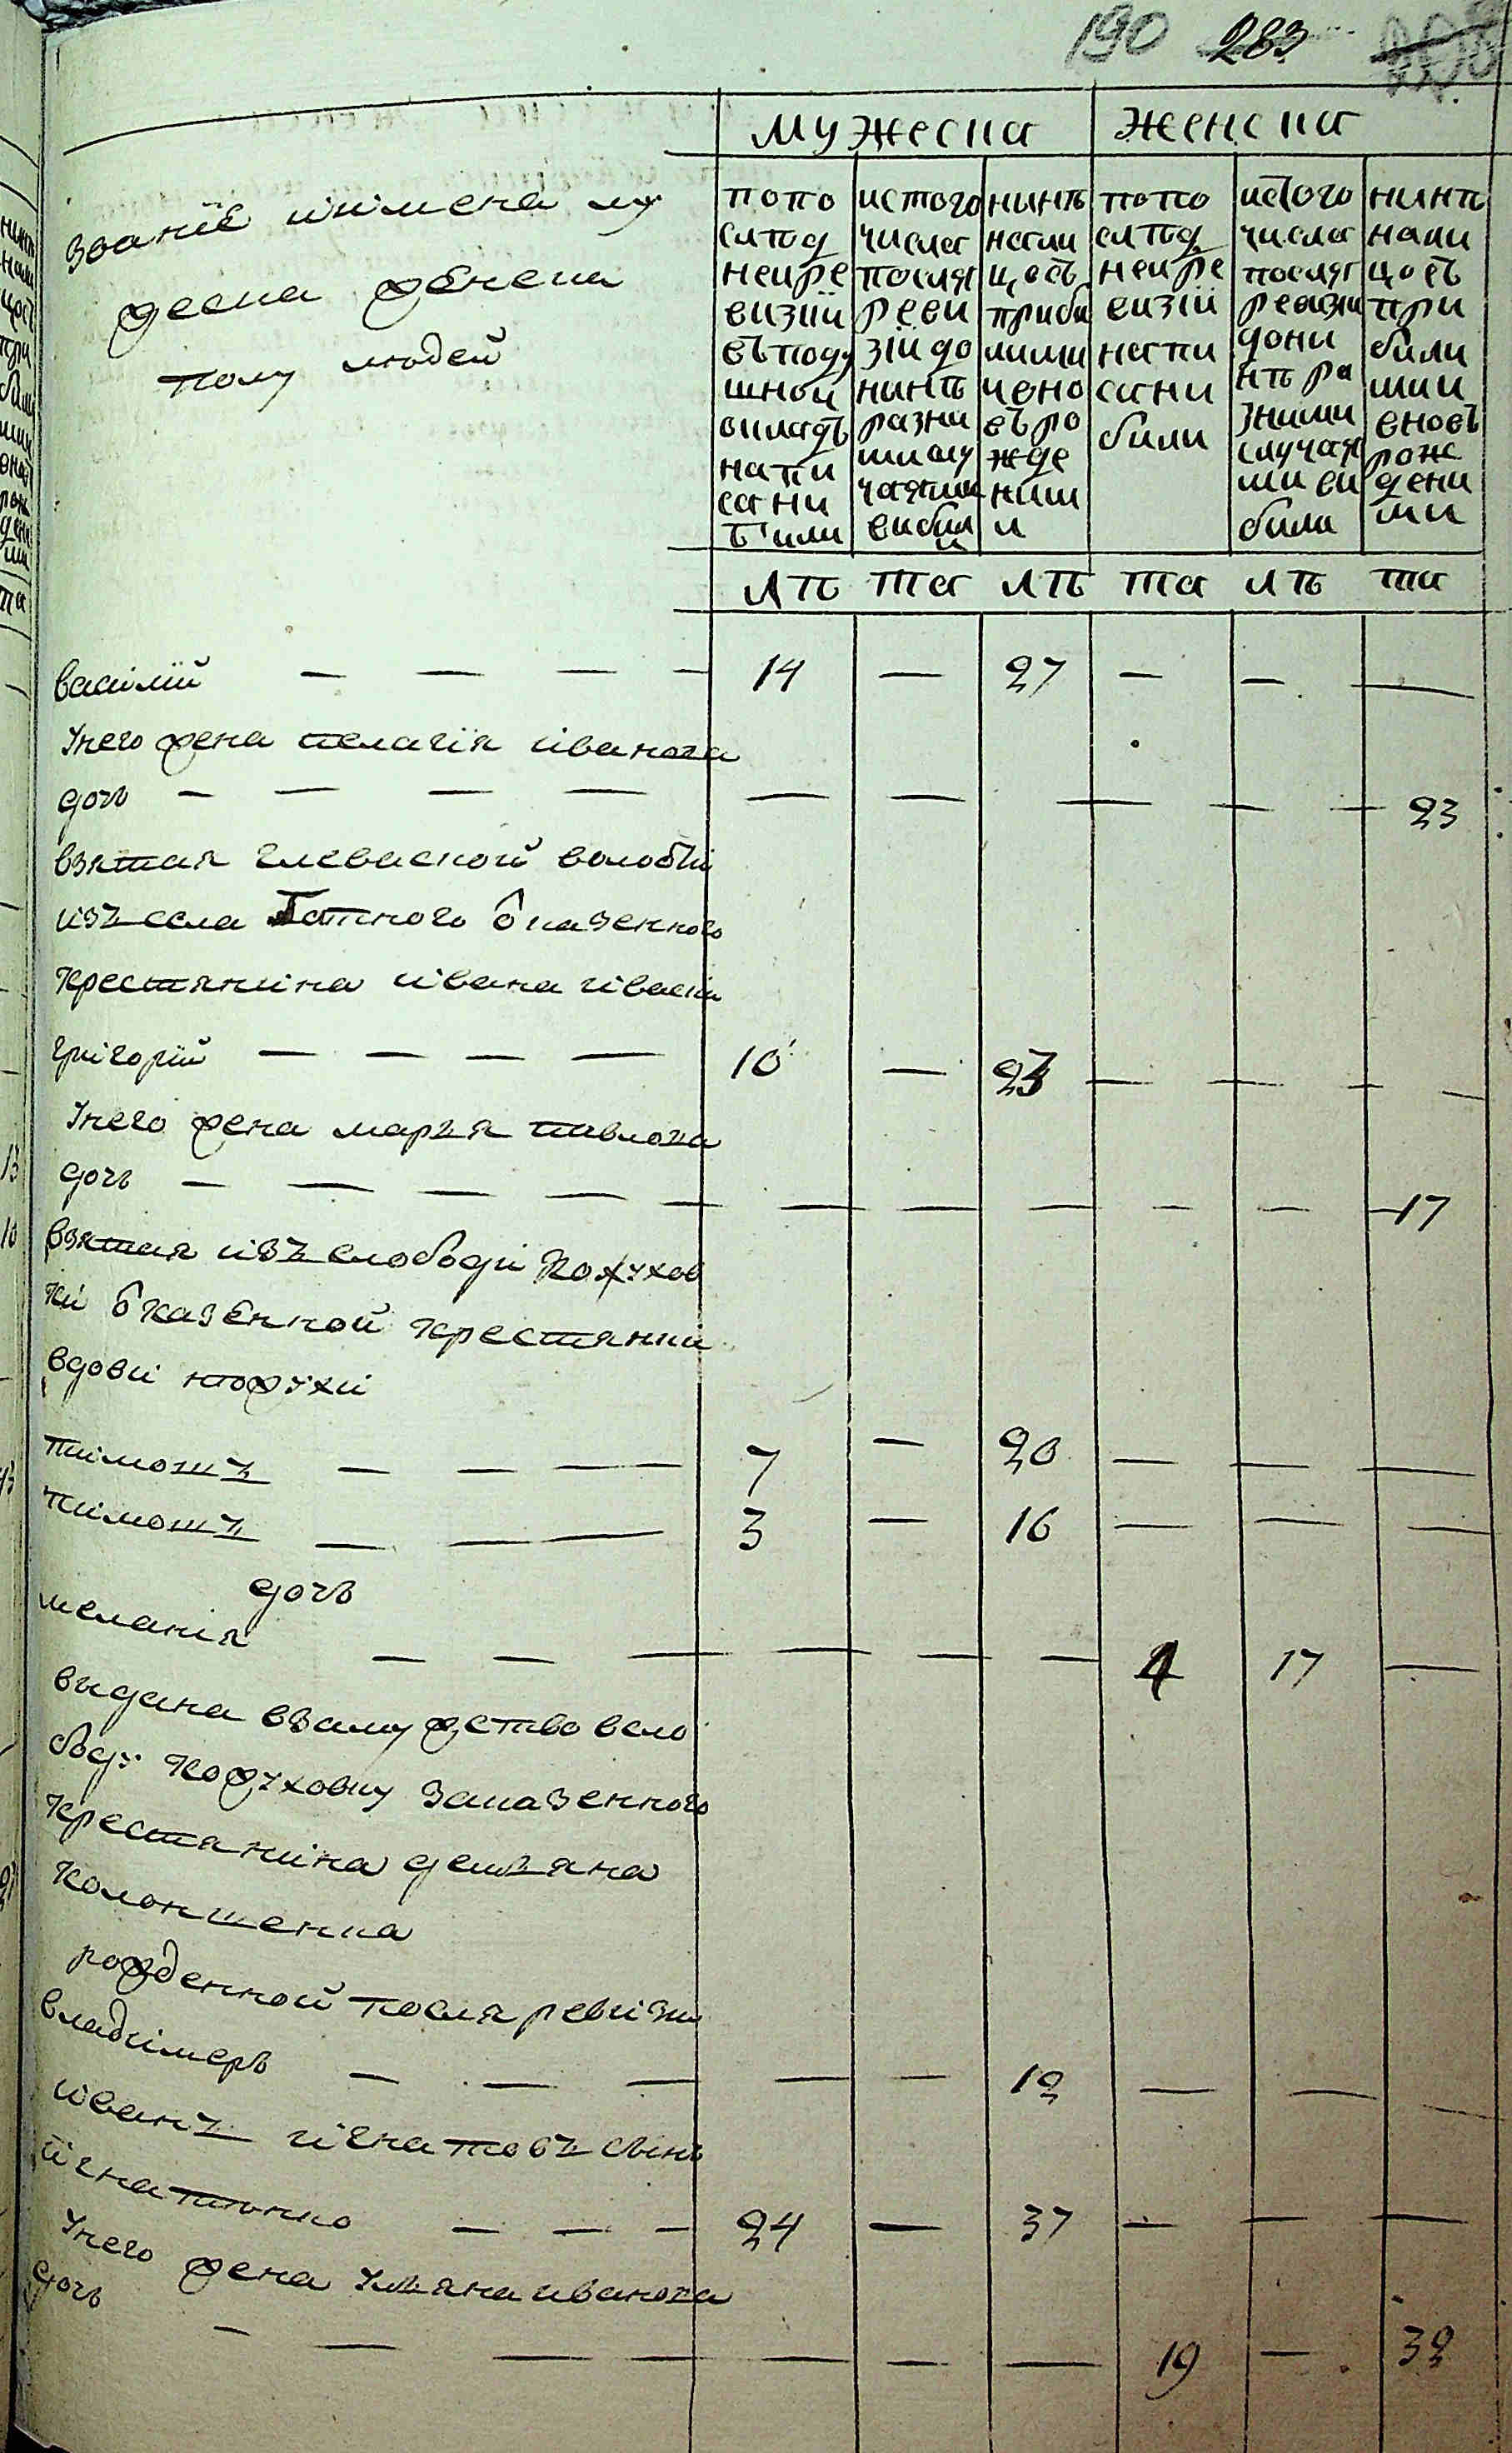 190 283
мужеска женска
званїе иимена му
деска женска
полу людей
попо
слѣд
неире
визіи
въподу
шной
окладъ
напи
сани
били
истого
числа
посля
реви
зіи до
нинѣ
разни
ми слу
чаями
вибил
и
нинѣ
нали
цосъ
приби
лими
чено
въро
жде
ними
и
попо
слѣд
неире
визіи
напи
сани
били
истого
числа
посля
ревизи
дони
нѣ ра
зними
случая
ми ви
били
нинѣ
нали
цосъ
при
били
ми и
вновъ
рож
дени
ми
лѣ та лѣ та лѣ та
василїй — — — — 14 — 27 — — —
Унего жена пелагїя іванова
дочь — — — — — — — — — 23
взятая глеваской волости
изъ села Гатного 6 казенного
крестянина ивана іваски
григорїй — — — — 10 — 23 — — —
Унего жена марья павлова
дочь — — — — — — — — — — 17
взятая изъ слободи Кожухов
ки 6 казенной крестянки
вдови кожухи
тимошъ — — — — 7 — 20 — — —
тимошъ — — — 3 — 16 — — —
дочь
меланія — — — — — — 4 17 —
выдана взамужство вело
боду кожуховку заказенного
крестянина демяна
колонтенка
рожденной посля ревизіи
владимеръ — — — — — 12 — — —
иванъ игнатовъ сынъ
игнатенко — — — 24 — 37 — — —
Унего жена Уляна иванова
дочь — — — — — — — 19 — 32